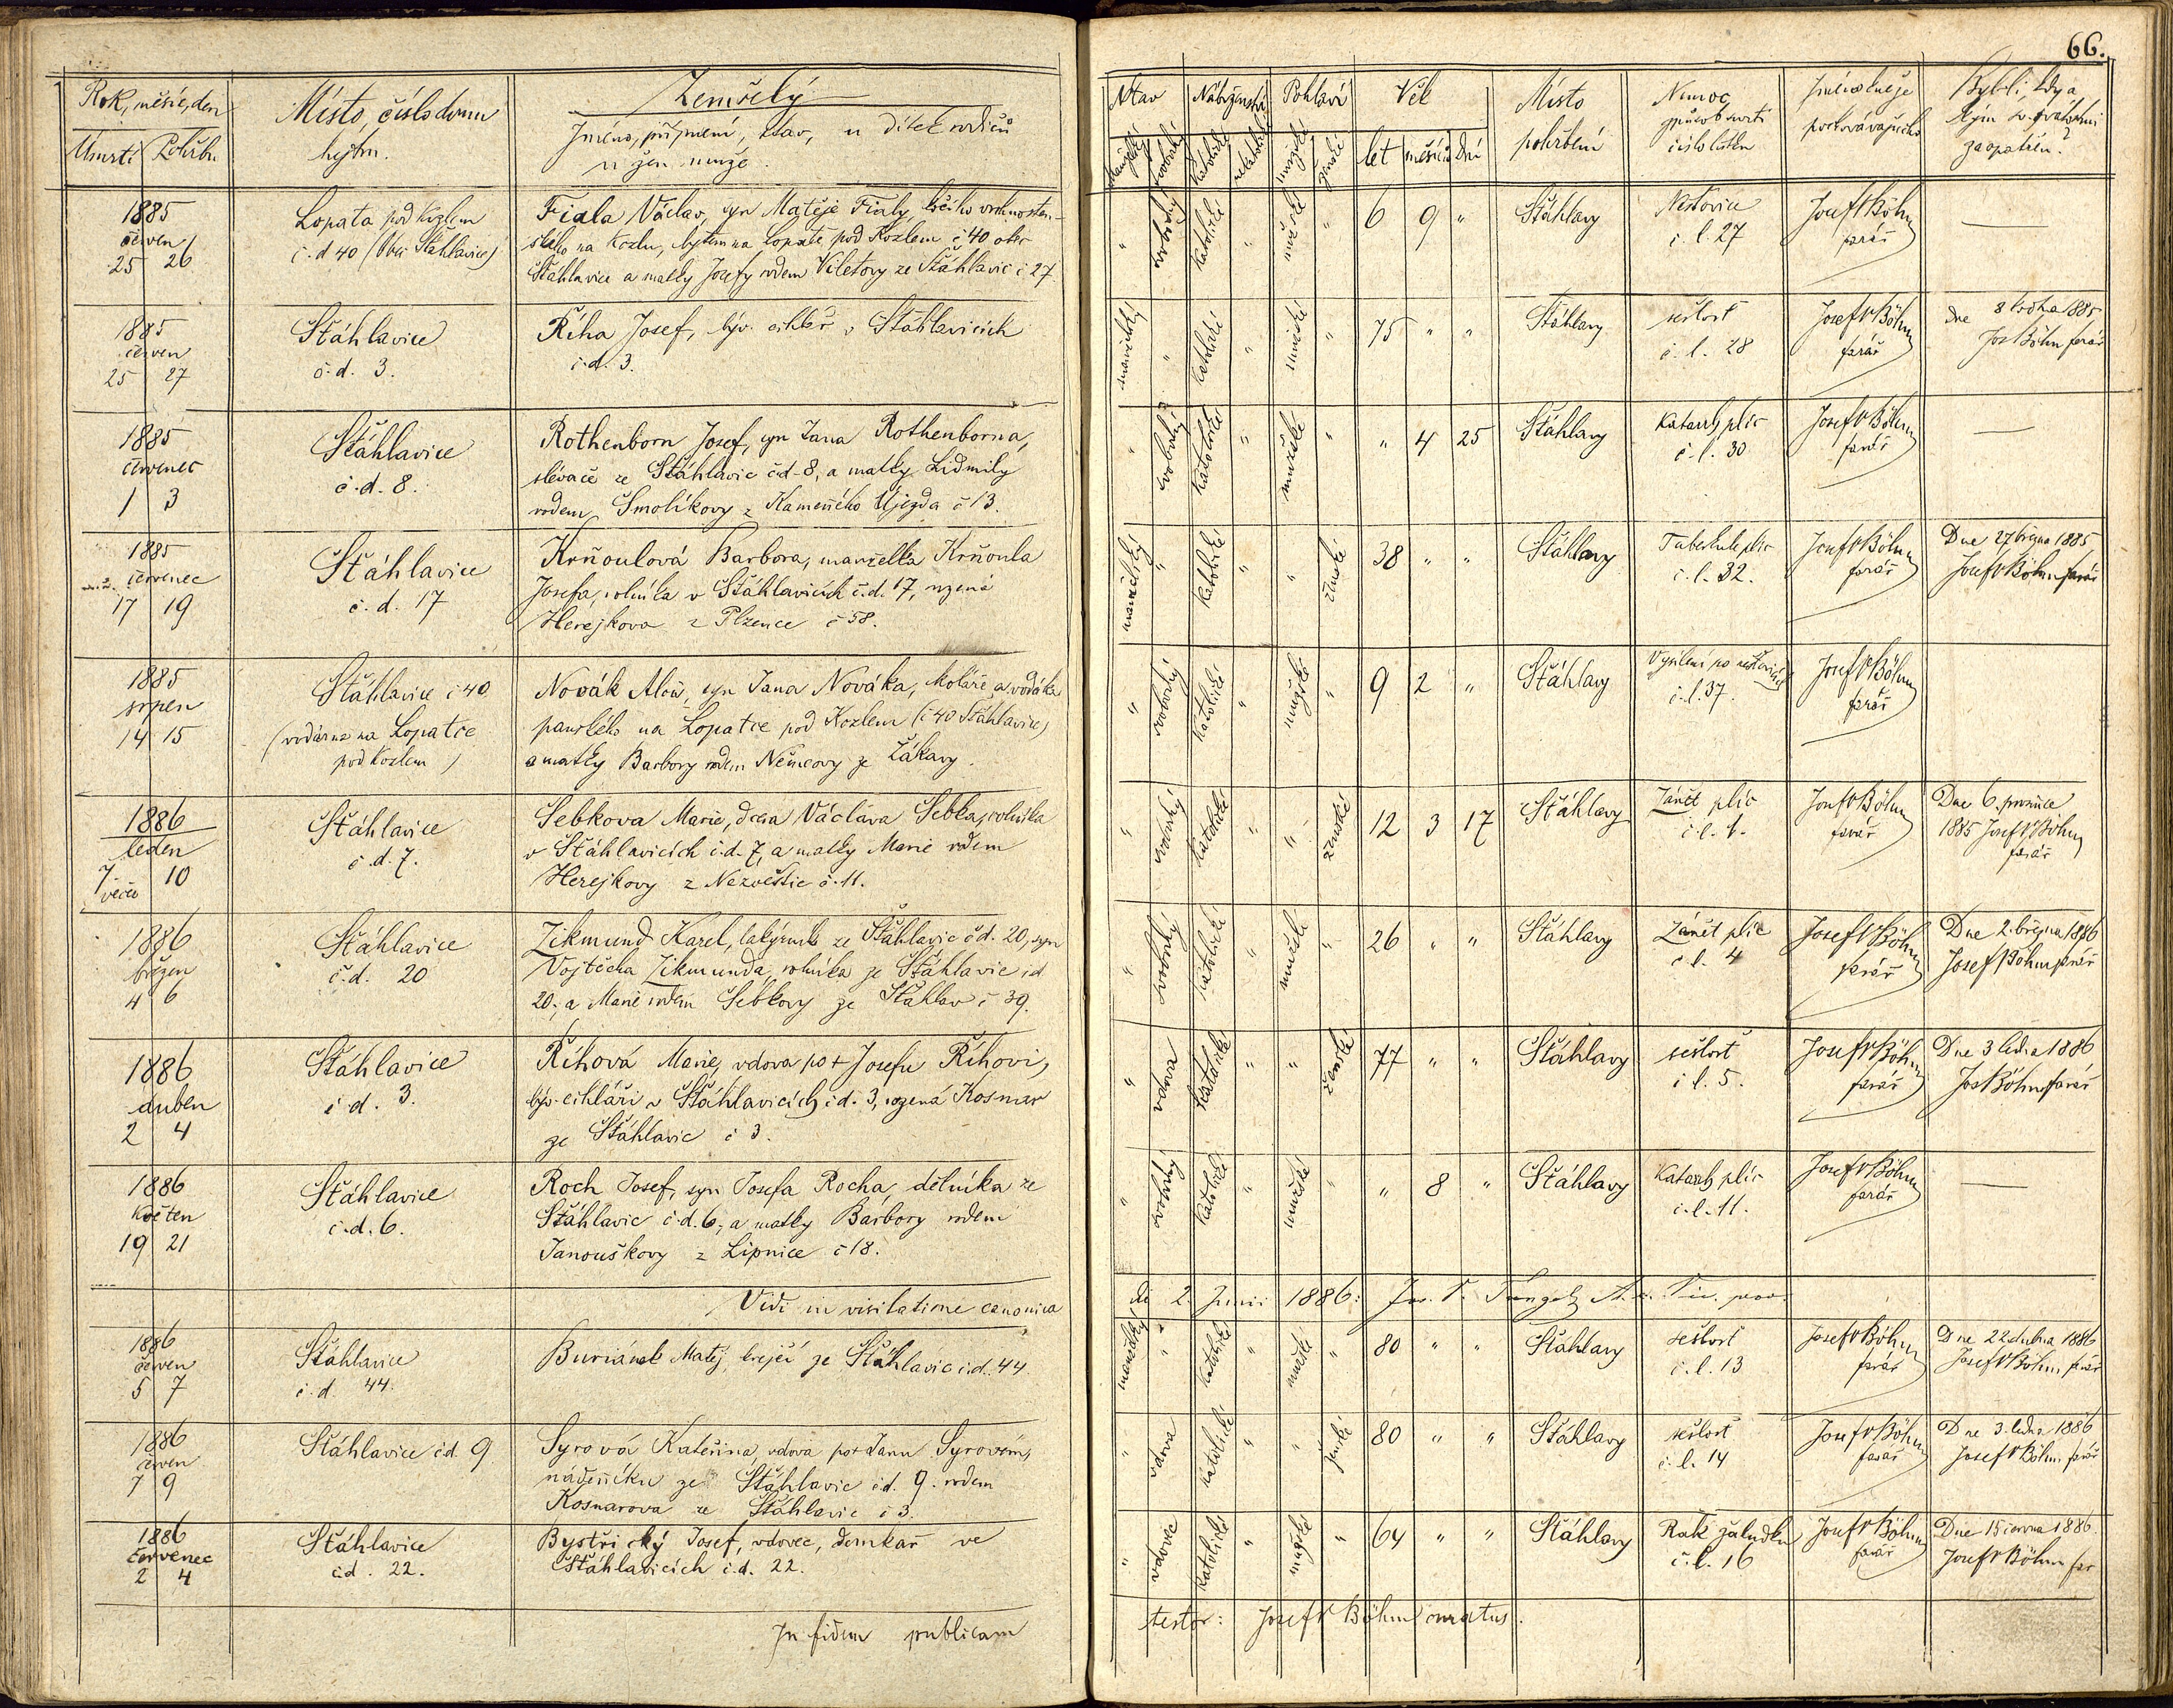 66.
Rok, měsíc, den
Úmrtí Pohřbu
Místo, číslo domu
bejtem.
Zemřelý
Jméno, příjmení, stav, u dítek rodičů
u žen muže.
Stav
Náboženství
Pohlaví
Věk
let měsíců dní
Místo
pohřbení
Nemoc,
způsob smrti
číslo listu
Jméno kněze
pochovávajícího
Byl-li, kdy a
kým sv. svátostmi
zaopatřen?
1885
červen
25 26
Lopata pod Kozlem
č. d 40 (Obec Šťáhlavice)
Fiala Václav, syn Matěje Fialy, kočího vrchnosten-
ského na Kozlu, bytem na Lopatě pod Kozlem č 40 obec
Šťáhlavice a matky Josefy rodem Viletovy ze Šťáhlavic č 27.
" svobodný katolické " mužské " 6 9 "
Šťáhlavy
Neštovice
č. l. 27
Josef V Böhm
farář
1885
červen
25 27
Šťáhlavice
č. d. 3.
Říha Josef, býv. cihlář v Šťáhlavicích
č. d. 3.
manželský " katolické " mužské " 75 " "
Šťáhlavy
sešlost
č. l. 28
Josef V Böhm
farář
Dne 8 ledna 1885
Jos Böhm farář
1885
červenec
1 3
Šťáhlavice
č. d. 8.
Rothenborn Josef, syn Jana Rothenborna,
slévače ze Šťáhlavic čd. 8, a matky Lidmily
rodem Smolíkovy z Kamenného Újezda č 13.
" svobodný katolické " mužské " " 4 25
Šťáhlavy
Katarrh plic
č. l. 30
Josef V Böhm
farář
1885
červenec
17 19
Šťáhlavice
č. d. 17
Krňoulová Barbora, manželka Krňoula
Josefa, rolníka v Šťáhlavicích č. d. 17, rozená
Herejkova z Plzence č 58.
manželský " katolické " " ženské 38 " "
Šťáhlavy
Tuberkule plic
č. l. 32.
Josef V Böhm
farář
Dne 27 března 1885
Josef V Böhm farář
1885
srpen
14 15
Šťáhlavice č 40
(vodárna na Lopatce
pod Kozlem)
Novák Alois, syn Jana Nováka, kolářa a vodáka
panského na Lopatce pod Kozlem (č 40 Šťáhlavice)
a matky Barbory rodem Němcovy ze Žákavy.
" svobodný katolické " mužské " 9 2 "
Šťáhlavy
Vysílení po neštovicích
č. l. 37.
Josef V Böhm
farář
1886
leden
7. 10
večer
Šťáhlavice
č. d. 7.
Sebkova Marie, dcera Václava Sebka, rolníka
v Šťáhlavicích č. d. 7, a matky Marie rodem
Herejkovy z Nezvěstic č. 11.
" svobodný katolické " " ženské 12 3 17
Šťáhlavy
Zánět plic
č. l. 1.
Josef V Böhm
farář
Dne 6. prosince
1885 Josef V Böhm
farář
1886
březen
4 6
Šťáhlavice
č. d. 20
Zikmund Karel, lakýrník ze Šťáhlavic č d. 20, syn
Vojtěcha Zikmunda, rolníka ze Šťáhlavic č d
20, a Marie rodem Sebkovy ze Šťáhlav č 39.
" svobodný katolické " mužské " 26 " "
Šťáhlavy
Zánět plic
č l. 4
Josef V Böhm
farář
Dne 2. března 1886
Josef V Böhm farář
1886
duben
2 4
Šťáhlavice
č d. 3.
Říhová Marie, vdova po + Josefu Říhovi,
býv. cihláři v Šťáhlavicích č d. 3, rozená Kosnar
ze Šťáhlavic č 3.
" vdova katolické " " ženské 77 " "
Šťáhlavy
sešlost
č l. 5.
Josef V Böhm
farář
Dne 3 ledna 1886
Jos V Böhm farář
1886
květen
19 21
Šťáhlavice
č. d. 6.
Roch Josef, syn Josefa Rocha, dělníka ze
Šťáhlavic č. d. 6, a matky Barbory rodem
Janouškovy z Lipnice č 18.
" svobodný katolické " mužské " " 8 "
Šťáhlavy
Katarrh plic
č. l. 11.
Josef V Böhm
farář
Vidi in visitatione canonica
di 2. Junii 1886:
1886
červen
5 7
Šťáhlavice
č. d. 44.
Buriánek Matěj, krejčí ze Šťáhlavic č. d. 44.
manželský " katolické " mužské " 80 " "
Šťáhlavy
sešlost
č. l. 13
Josef V Böhm
farář
Dne 22 dubna 1886
Josef V Böhm farář
1886
červen
7 9
Šťáhlavice č d. 9
Syrová Kateřina, vdova po + Janu Syrovém,
nádeníku ze Šťáhlavic č d. 9. rodem
Kosnarova ze Šťáhlavic č 3.
" vdova katolické " " ženské 80 " "
Šťáhlavy
sešlost
č. l. 14
Josef V Böhm
farář
Dne 3. ledna 1886
Josef V Böhm farář
1886
červenec
2 4
Šťáhlavice
č d. 22.
Bystřický Josef, vdovec, domkař ve
Šťáhlavicích č. d. 22.
" vdovec katolické " mužské " 64 " "
Šťáhlavy
Rak žaludku
č. l. 16
Josef V Böhm
farář
Dne 15 června 1886
Josef V Böhm far
In fidem publicam
testor: Josef V Böhm curatus.